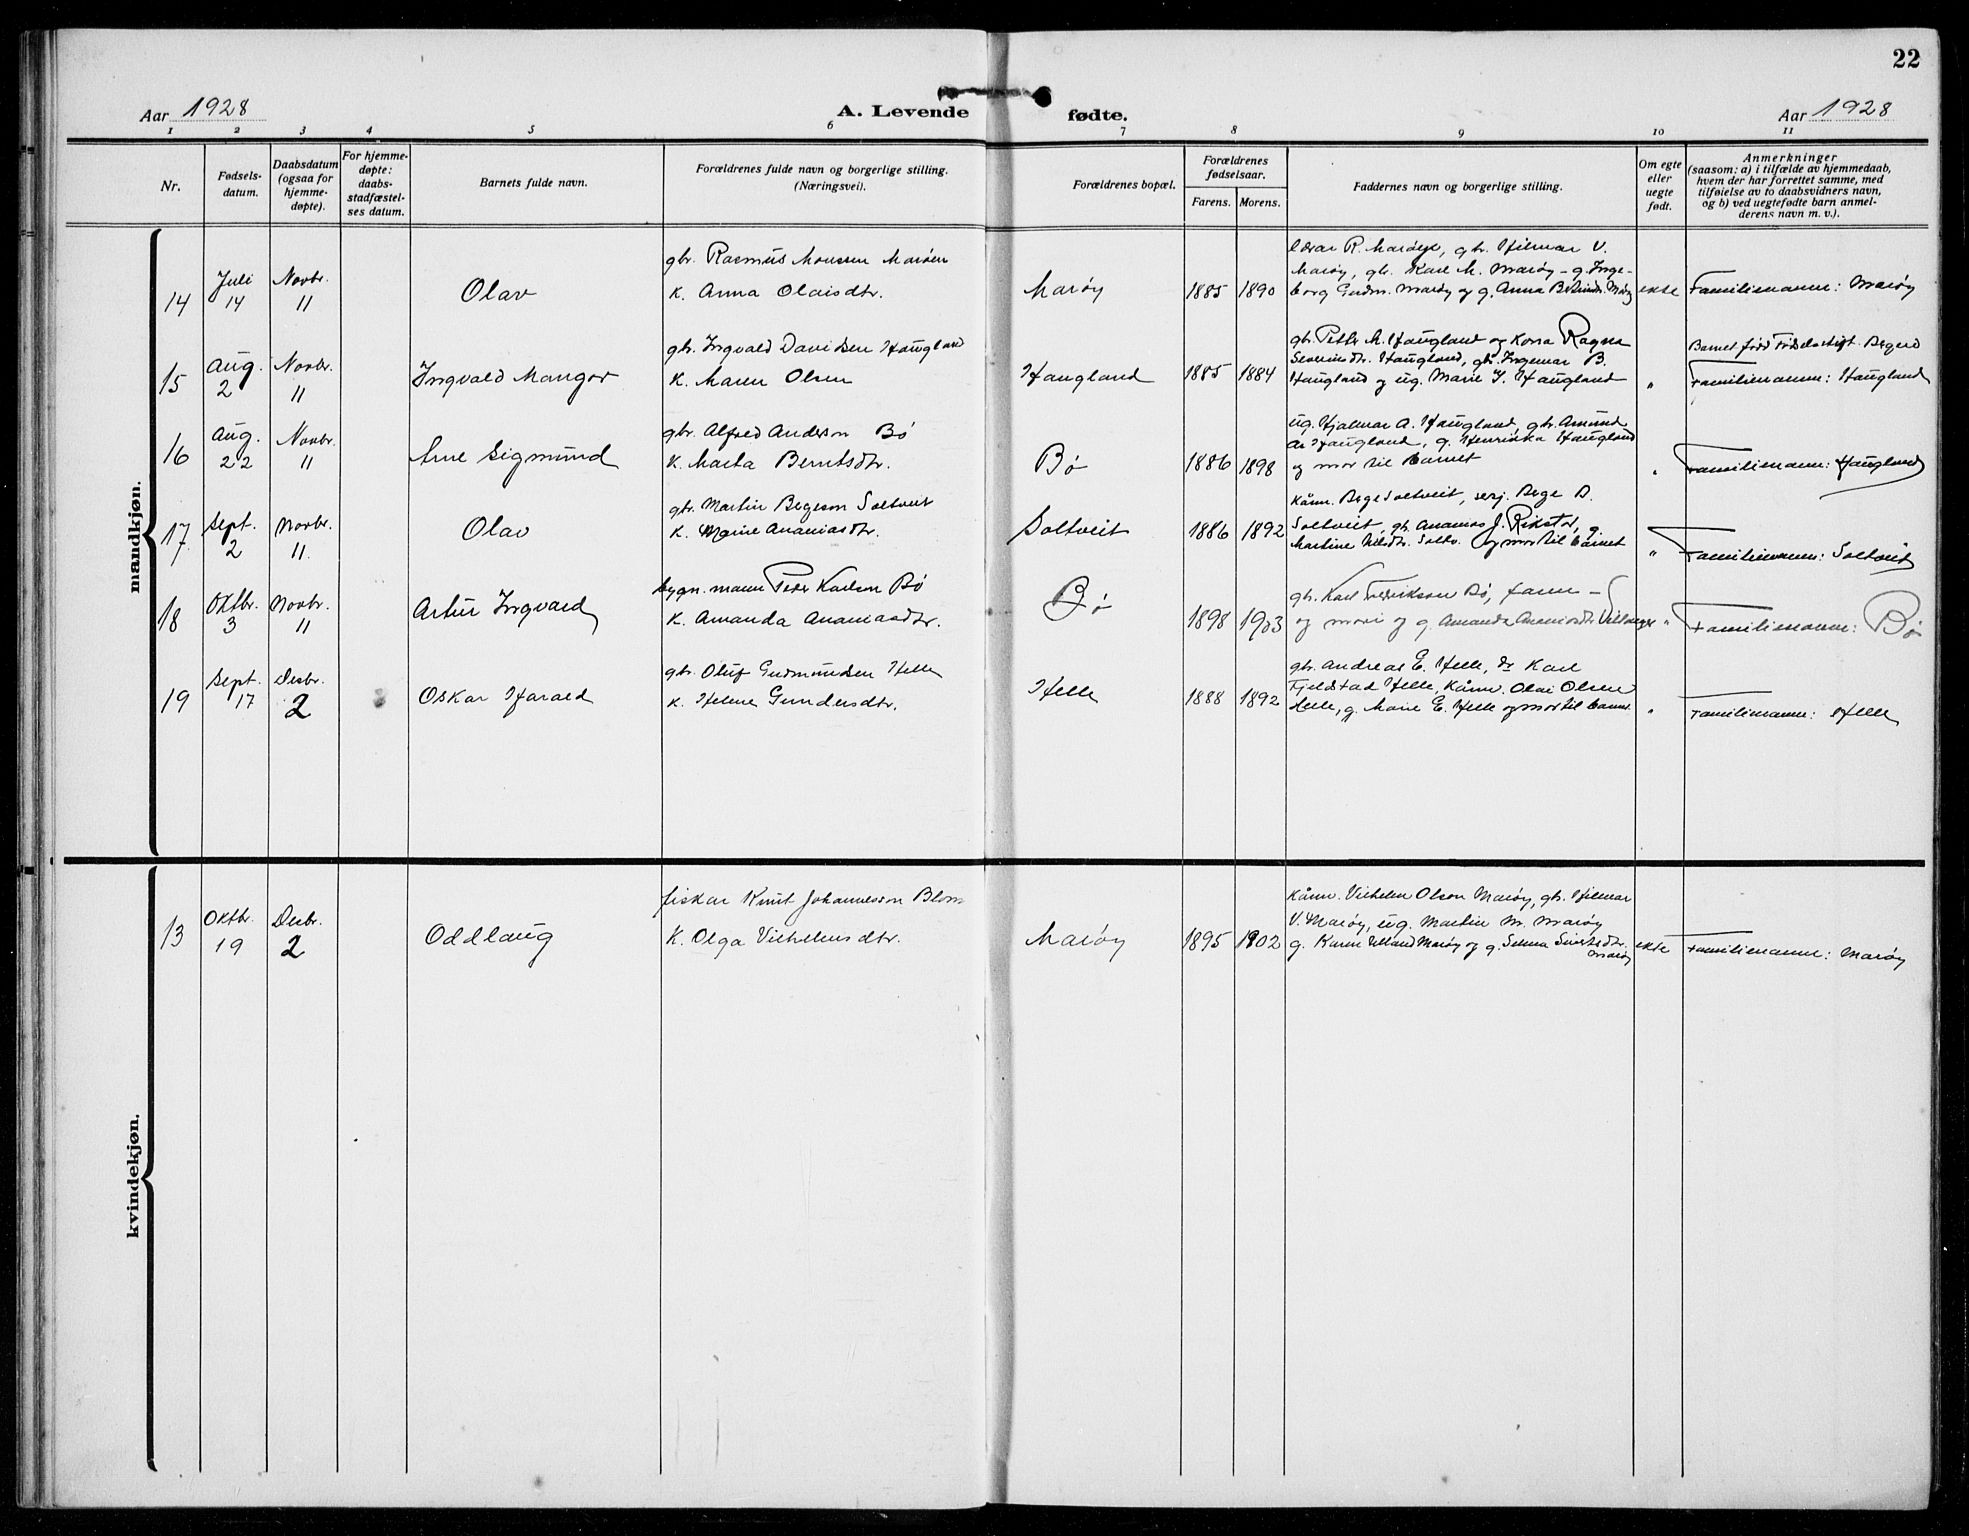 22
Aar 1928
A. Levende fødte.
Aar 1928
1 2 3 4 5 6 7 8 9 10 11
Nr.
Fødsels-
datum.
Daabsdatum
(ogsaa for
hjemme-
døpte).
For hjemme-
døpte:
daabs-
stadfæstel-
ses datum.
Barnets fulde navn.
Forældrenes fulde navn og borgerlige stilling.
(Næringsvei).
Forældrenes bopæl.
Forældrenes
fødselsaar.
Farens. Morens.
Faddernes navn og borgerlige stilling.
Om egte
eller
uegte
født.
Anmerkninger
(saasom: a) i tilfælde av hjemmedaab,
hvem der har forrettet samme, med
tilføielse av to daabsvidners navn,
og b) ved uegtefødte barn anmel-
derens navn m. v.).
mandkjøn.
14
Juli
14
Novbr.
11
Olav
gbr. Rasmus Monssen Marøen
K. Anna Olaisdtr.
Marøy
1885 1890
lærar R. Marøye, gbr. Hilmar V.
Marøy, gbr. Karl M. Marøy - g. Inge-
borg Gudm. Marøy og g. Anna Marøy
ekte
Familienamn: Marøy
15
Aug.
2
Novbr.
11
Ingvald Mangor
gbr. Ingvald Davidsen Haugland
K. Maren Olsen
Haugland
1885 1884
gbr. Petter M. Haugland og kona Ragna
Severindtr. Haugland, gbr. Ingemar B.
Haugland og ug. Marie I. Haugland
"
Barnet fødd
Familienamn: Haugland
16
Aug.
22
Novbr.
11
Arne Sigmund
gbr. Alfred Anderson Bø
K. Marta Berntsdtr.
Bø
1886 1898
ug. Hjalmar A. Haugland, gbr. Amund
A. Haugland, g. Henrikka Haugland
og mor til barnet
"
Familienamn: Haugland
17
Sept.
2
Novbr.
11.
Olav
gbr. Martin Begeson Soltveit
K. Marie Ananiasdtr.
Soltveit
1886 1892
Kårm. Bege Soltveit, serj. Bege D.
Soltveit, gbr. Ananias J. Rikstad, g.
Martine Nilsdtr. Soltv. og mor til barnet
"
Familienamn: Soltveit
18
Oktbr.
3
Novbr.
11
Artur Ingvard
bygn. mann Peder Karlson Bø
K. Amanda Ananiasdtr.
Bø
1898 1903
gbr. Karl Fredrikson Bø, faren -
og mori og g. Amanda Ananiasdtr.
"
Familienamn: Bø
19
Sept.
17
Desbr.
2
Oskar Harald
gbr. Oluf Gudmundsen Helle
K. Helene Gundersdtr.
Helle
1888 1892
gbr. Andreas E. Helle, do Karl
Fjeldstad Helle, Kårm. Olai Olsen
Helle, g. Marie E. Helle og mor til barnet.
"
Familienamn: Helle
kvindekjøn.
13
Oktbr.
19
Desbr.
2
Oddlaug
fiskar Knut Johannesson Blom
K. Olga Vilhelmsdtr.
Marøy
1895 1902
Kårm. Vilhelm Olson Marøy, gbr. Hilmar
V. Marøy, ug. Martin M. Marøy
g. Karen Marøy og g. Selma Sivertsdtr.
Marøy
ekte
Familienamn: Marøy